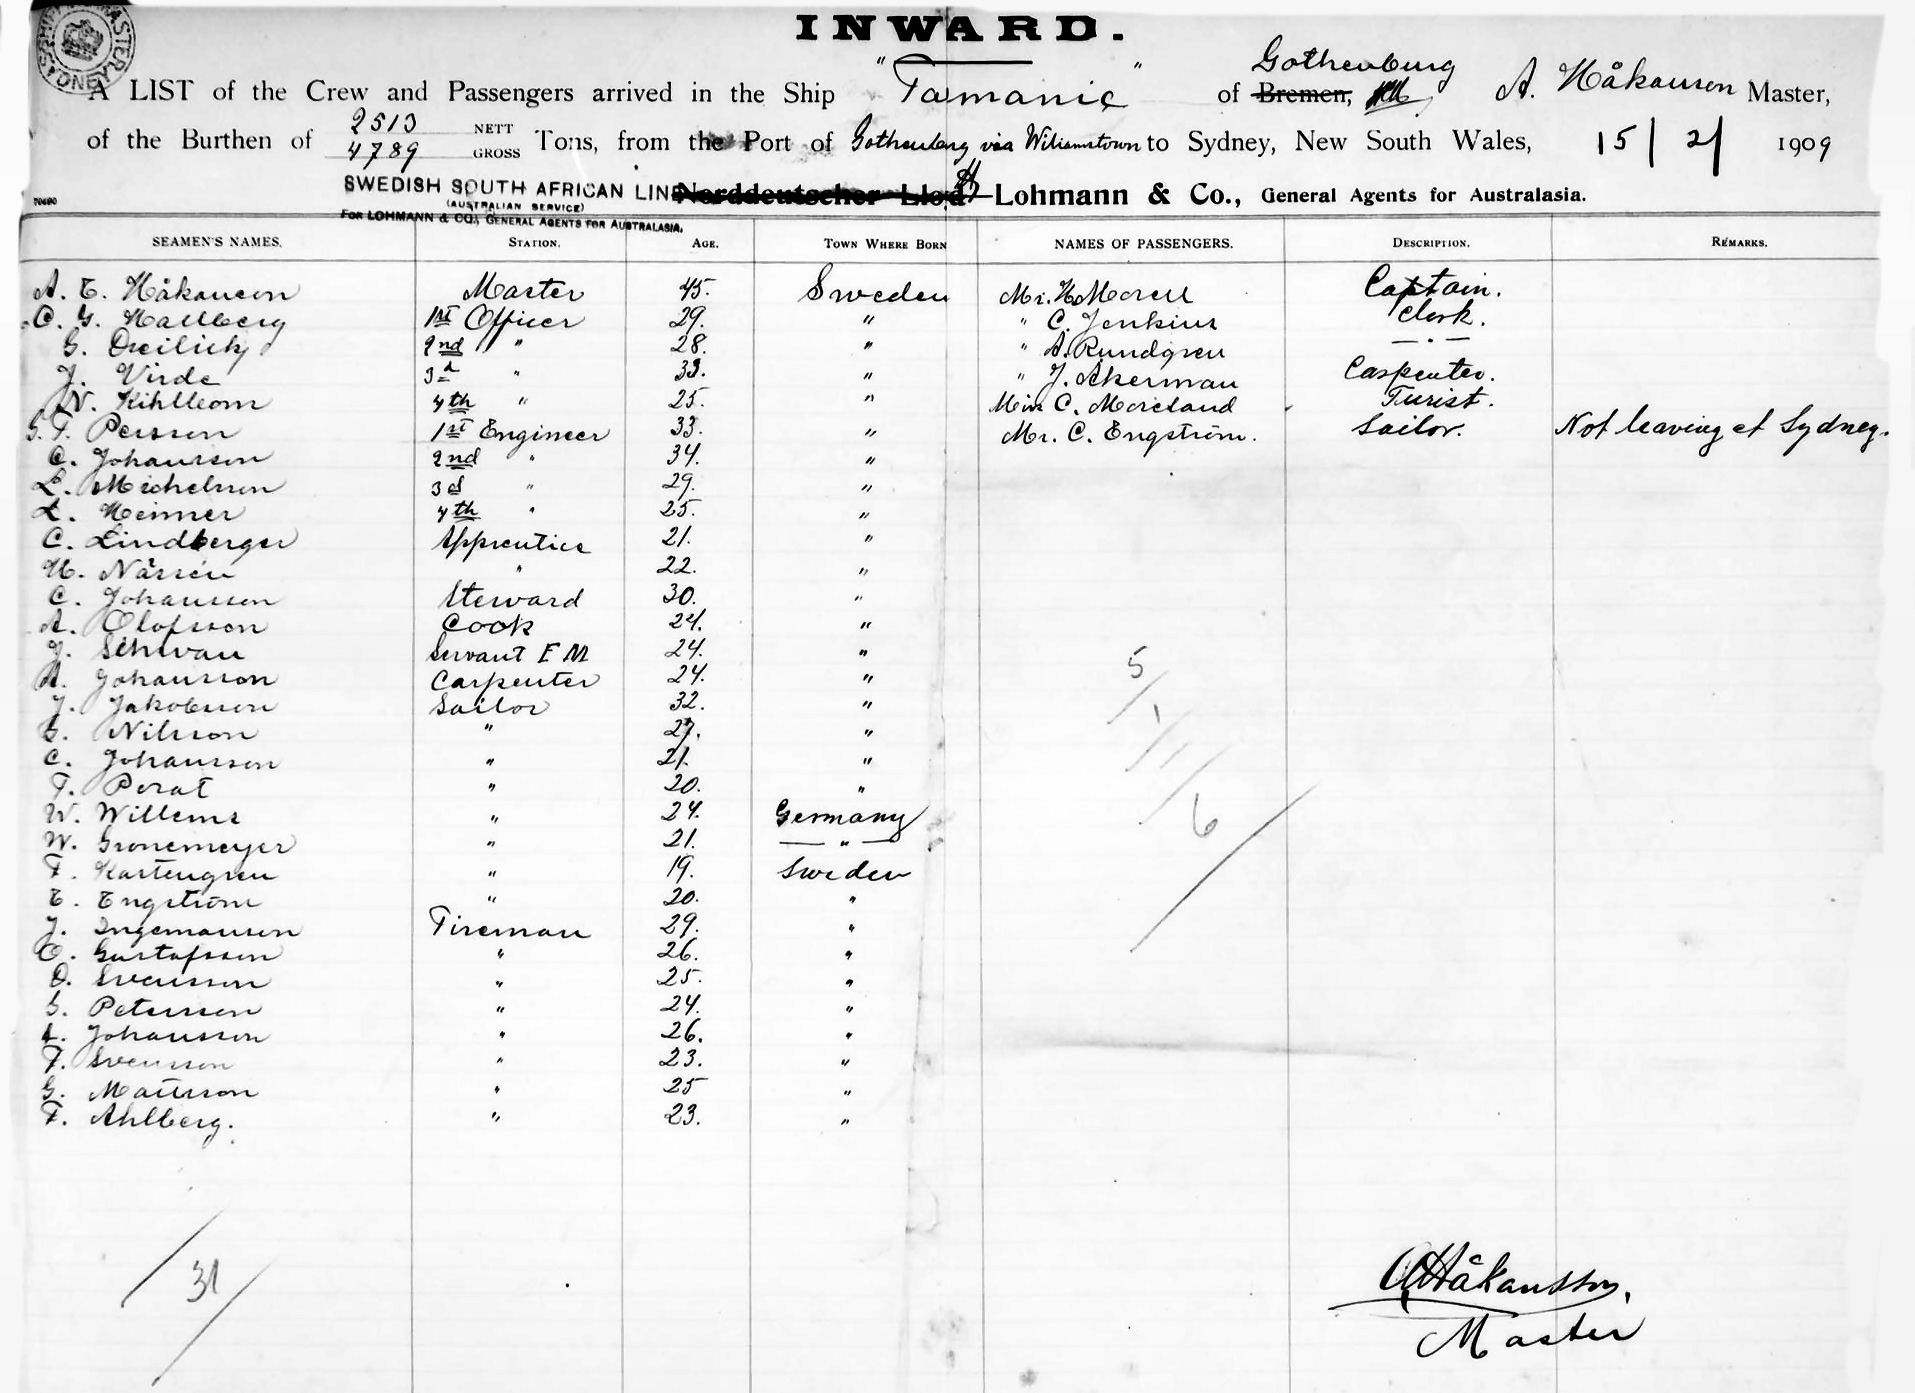 INWARD.
A LIST of the Crew and Passengers arrived in the Ship "Tamanic" of Bremen, Gothenburg A. Håkanson Master,
of the Burthen of 2513 NETT 4789 GROSS Tons, from the Port of Gothenburg via Wiliamstown to Sydney, New South Wales, 15/2/ 1909
SWEDISH SOUTH AFRICAN LINE Norddeutscher Lloyd Lohmann & Co., General Agents for Australasia.
(AUSTRALIAN SERVICE)
FOR LOHMANN & CO., GENERAL AGENTS FOR AUSTRALASIA.
70490
SEAMEN'S NAMES. STATION. AGE. TOWN WHERE BORN NAMES OF PASSENGERS. DESCRIPTION. REMARKS.
A. E. Håkanson Master 45. Sweden Mr. H Morell Captain.
C. G. Hallberg 1st Officer 29. " " C. Jenkins Clerk.
G. 2nd " 28. " " A. Rundgren — " —
J. Virde 3d " 33. " " J. Akerman Carpenter.
N. Kihlbom 4th " 25. " Miss C. Moreland Turist.
G. F. Persson 1st Engineer 33. " Mr. C. Engström. Sailor. Not leaving at Sydney.
C. Johansson 2nd " 34. "
L. Michelson 3d " 29. "
L. Heimer 4th " 25. "
C. Lindberger Apprentice 21. "
H. Nårren " 22. "
C. Johansson Steward 30. "
A. Olofsson Cook 24. "
J. Schwan Servant E M 24. "
A. Johansson Carpenter 24. "
J. Jakobsson Sailor 32. "
G. Nilsson " 27. "
C. Johansson " 21. "
F. Perat " 20. "
W. Willems " 24. Germany
W. Gronemeyer " 21. — " —
F. Kastengren " 19. Sweden
E. Engström " 20. "
J. Ingemansson Fireman 29. "
O. Gustafsson " 26. "
O. Svensson " 25. "
G. Petersson " 24. "
L. Johansson " 26. "
F. Svensson " 23. "
G. Mattsson " 25 "
F. Ahlberg. " 23. "
5/1/
/6/
/31/
A Håkansson,
Master